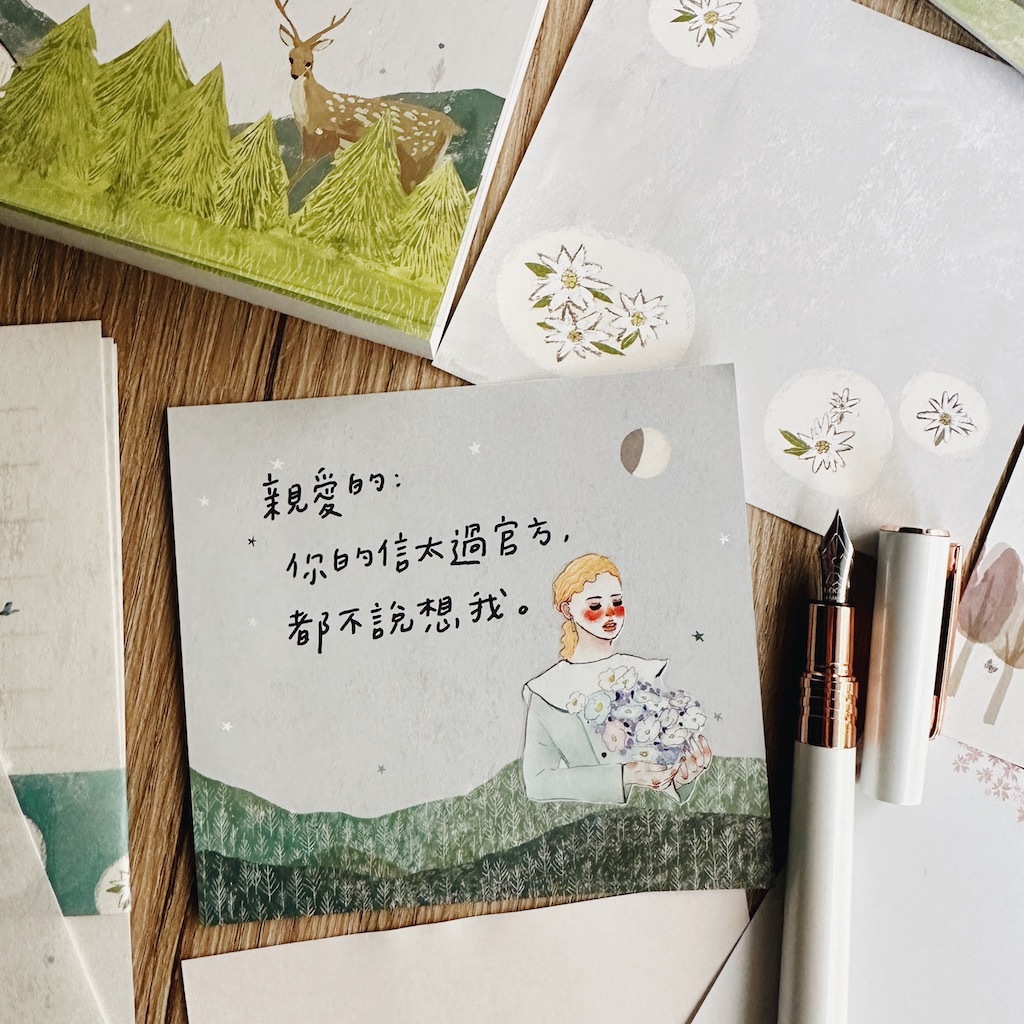 親愛的：
你的信太過官方，
都不說想我。